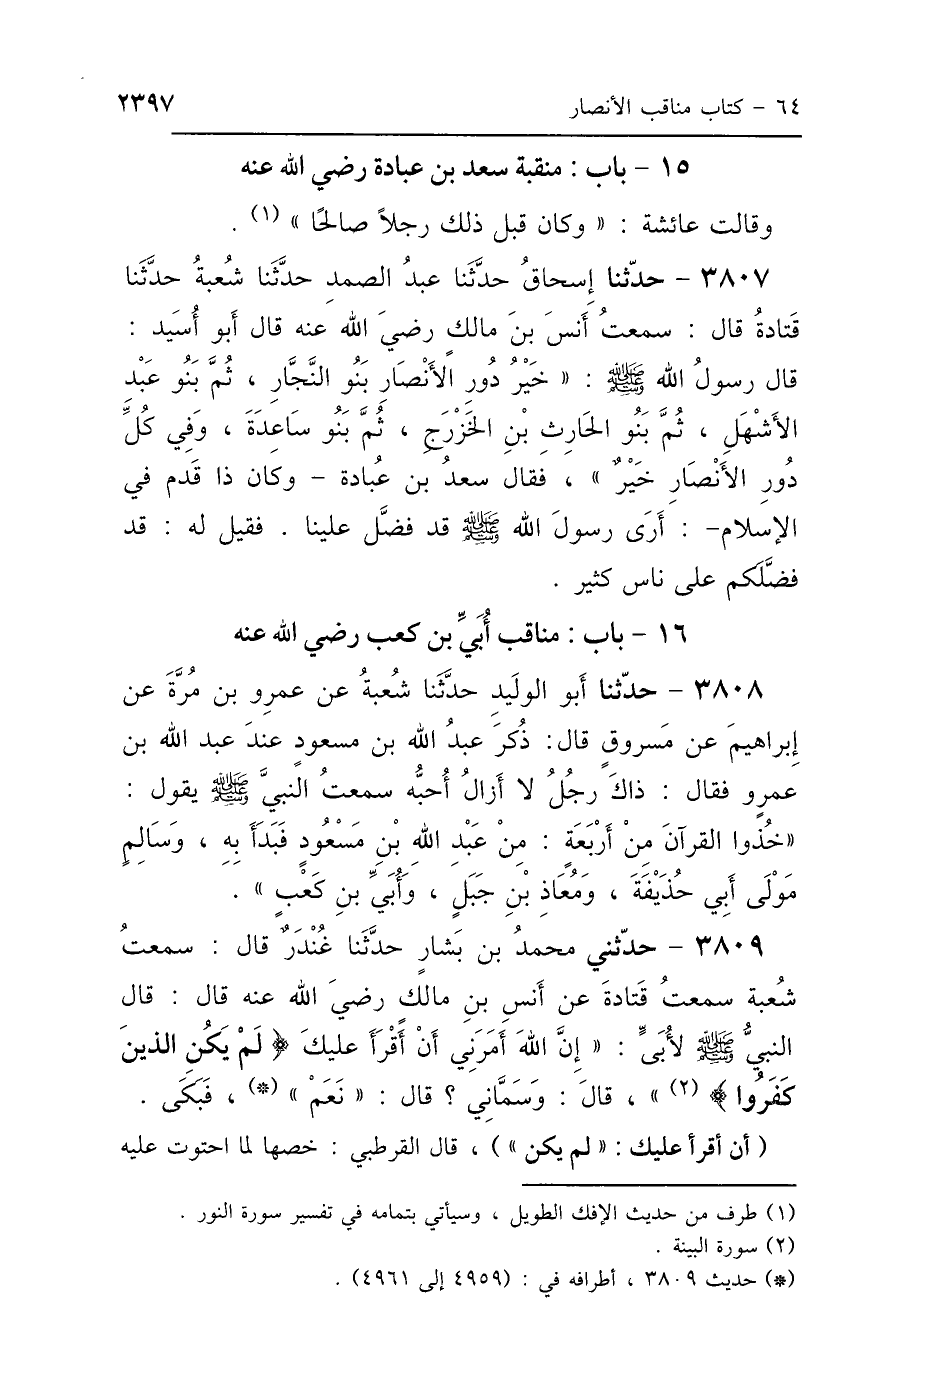 ٦٤ - كتاب مناقب الأنصار ٢٣٩٧
١٥ - باب : منقبة سعد بن عبادة رضي الله عنه
وقالت عائشة : « وكان قبل ذلك رجلاً صالحًا » (١) .
٣٨٠٧ - حدّثنا إسحاقُ حدَّثَنا عبدُ الصمدِ حدَّثَنا شُعبةُ حدَّثَنا
قَتادةُ قال : سمعتُ أنسَ بنَ مالكٍ رضيَ الله عنه قال أبو أُسَيد :
قال رسولُ الله ﷺ : « خَيْرُ دُورِ الأَنْصَارِ بَنُو النَّجَّارِ ، ثُمَّ بَنُو عَبْدِ
الأَشْهَلِ ، ثُمَّ بَنُو الحَارِثِ بْنِ الخَزْرَجِ ، ثُمَّ بَنُو سَاعِدَةَ ، وَفِي كُلِّ
دُورِ الأَنْصَارِ خَيْرٌ » ، فقال سعدُ بن عُبادة - وكان ذا قَدم في
الإسلام- : أَرَى رسولَ الله ﷺ قد فضَّل علينا . فقيل له : قد
فضَّلَكم على ناس كثير .
١٦ - باب : مناقب أُبَيِّ بن كعب رضي الله عنه
٣٨٠٨ - حدّثنا أبو الوليَدِ حدَّثَنا شُعبةُ عن عمرِو بن مُرَّةَ عن
إبراهيمَ عن مَسروقٍ قال: ذُكرَ عبدُ الله بن مسعودٍ عندَ عبد الله بن
عمرٍو فقال : ذاكَ رجُلُ لا أزالُ أُحبُّه سمعتُ النبيَّ ﷺ يقول :
«خُذُوا القرآنَ مِنْ أَرْبَعَةٍ : مِنْ عَبْدِ الله بْنِ مَسْعُودٍ فَبَدَأَ بِهِ ، وَسَالِمٍ
مَوْلَى أبي حُذَيْفَةَ ، ومُعَاذِ بْنِ جَبَلٍ ، وأُبَيِّ بنِ كَعْبٍ » .
٣٨٠٩ - حدّثني محمدُ بن بَشارٍ حدَّثَنا غُنْدَرٌ قال : سمعتُ
شُعبة سمعتُ قَتادةَ عن أنسِ بنِ مالكٍ رضيَ الله عنه قال : قال
النبيُّ ﷺ لأُبَىٍّ : « إنَّ اللهَ أمَرَني أنْ أقْرَأَ عليكَ ﴿ لَمْ يَكُنِ الذينَ
كَفَرُوا ﴾ (٢) » ، قالَ : وَسَمَّاني ؟ قال : « نَعَمْ » (*) ، فَبَكَى .
( أن أقرأ عليك : « لم يكن » ) ، قال القرطبي : خصها لما احتوت عليه
(١) طرف من حديث الإفك الطويل ، وسيأتي بتمامه في تفسير سورة النور .
(٢) سورة البينة .
(*) حديث ٣٨٠٩ ، أطرافه في : (٤٩٥٩ إلى ٤٩٦١) .